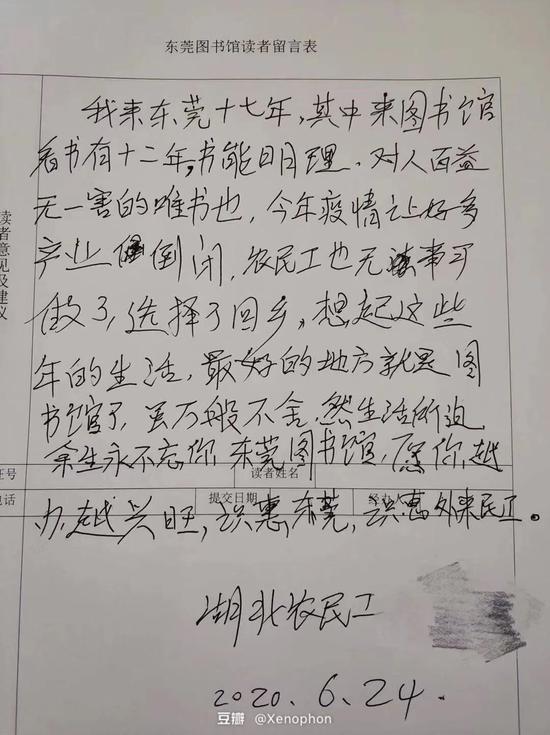 东莞图书馆读者留言表
我来东莞十七年,其中来图书馆
看书有十二年,书能明理、对人百益
无一害的唯书也,今年疫情让好多
产业倒闭,农民工也无事可
做了,选择了回乡。想起这些
年的生活,最好的地方就是图
书馆了,虽万般不舍,然生活所迫
余生永不忘你,东莞图书馆,愿你越
办越兴旺,识惠东莞,识惠外来民工。
读者意见及建议
证号
读者姓名
电话
提交日期
经办人
湖北农民工
2020.6.24.
豆瓣 @Xenophon